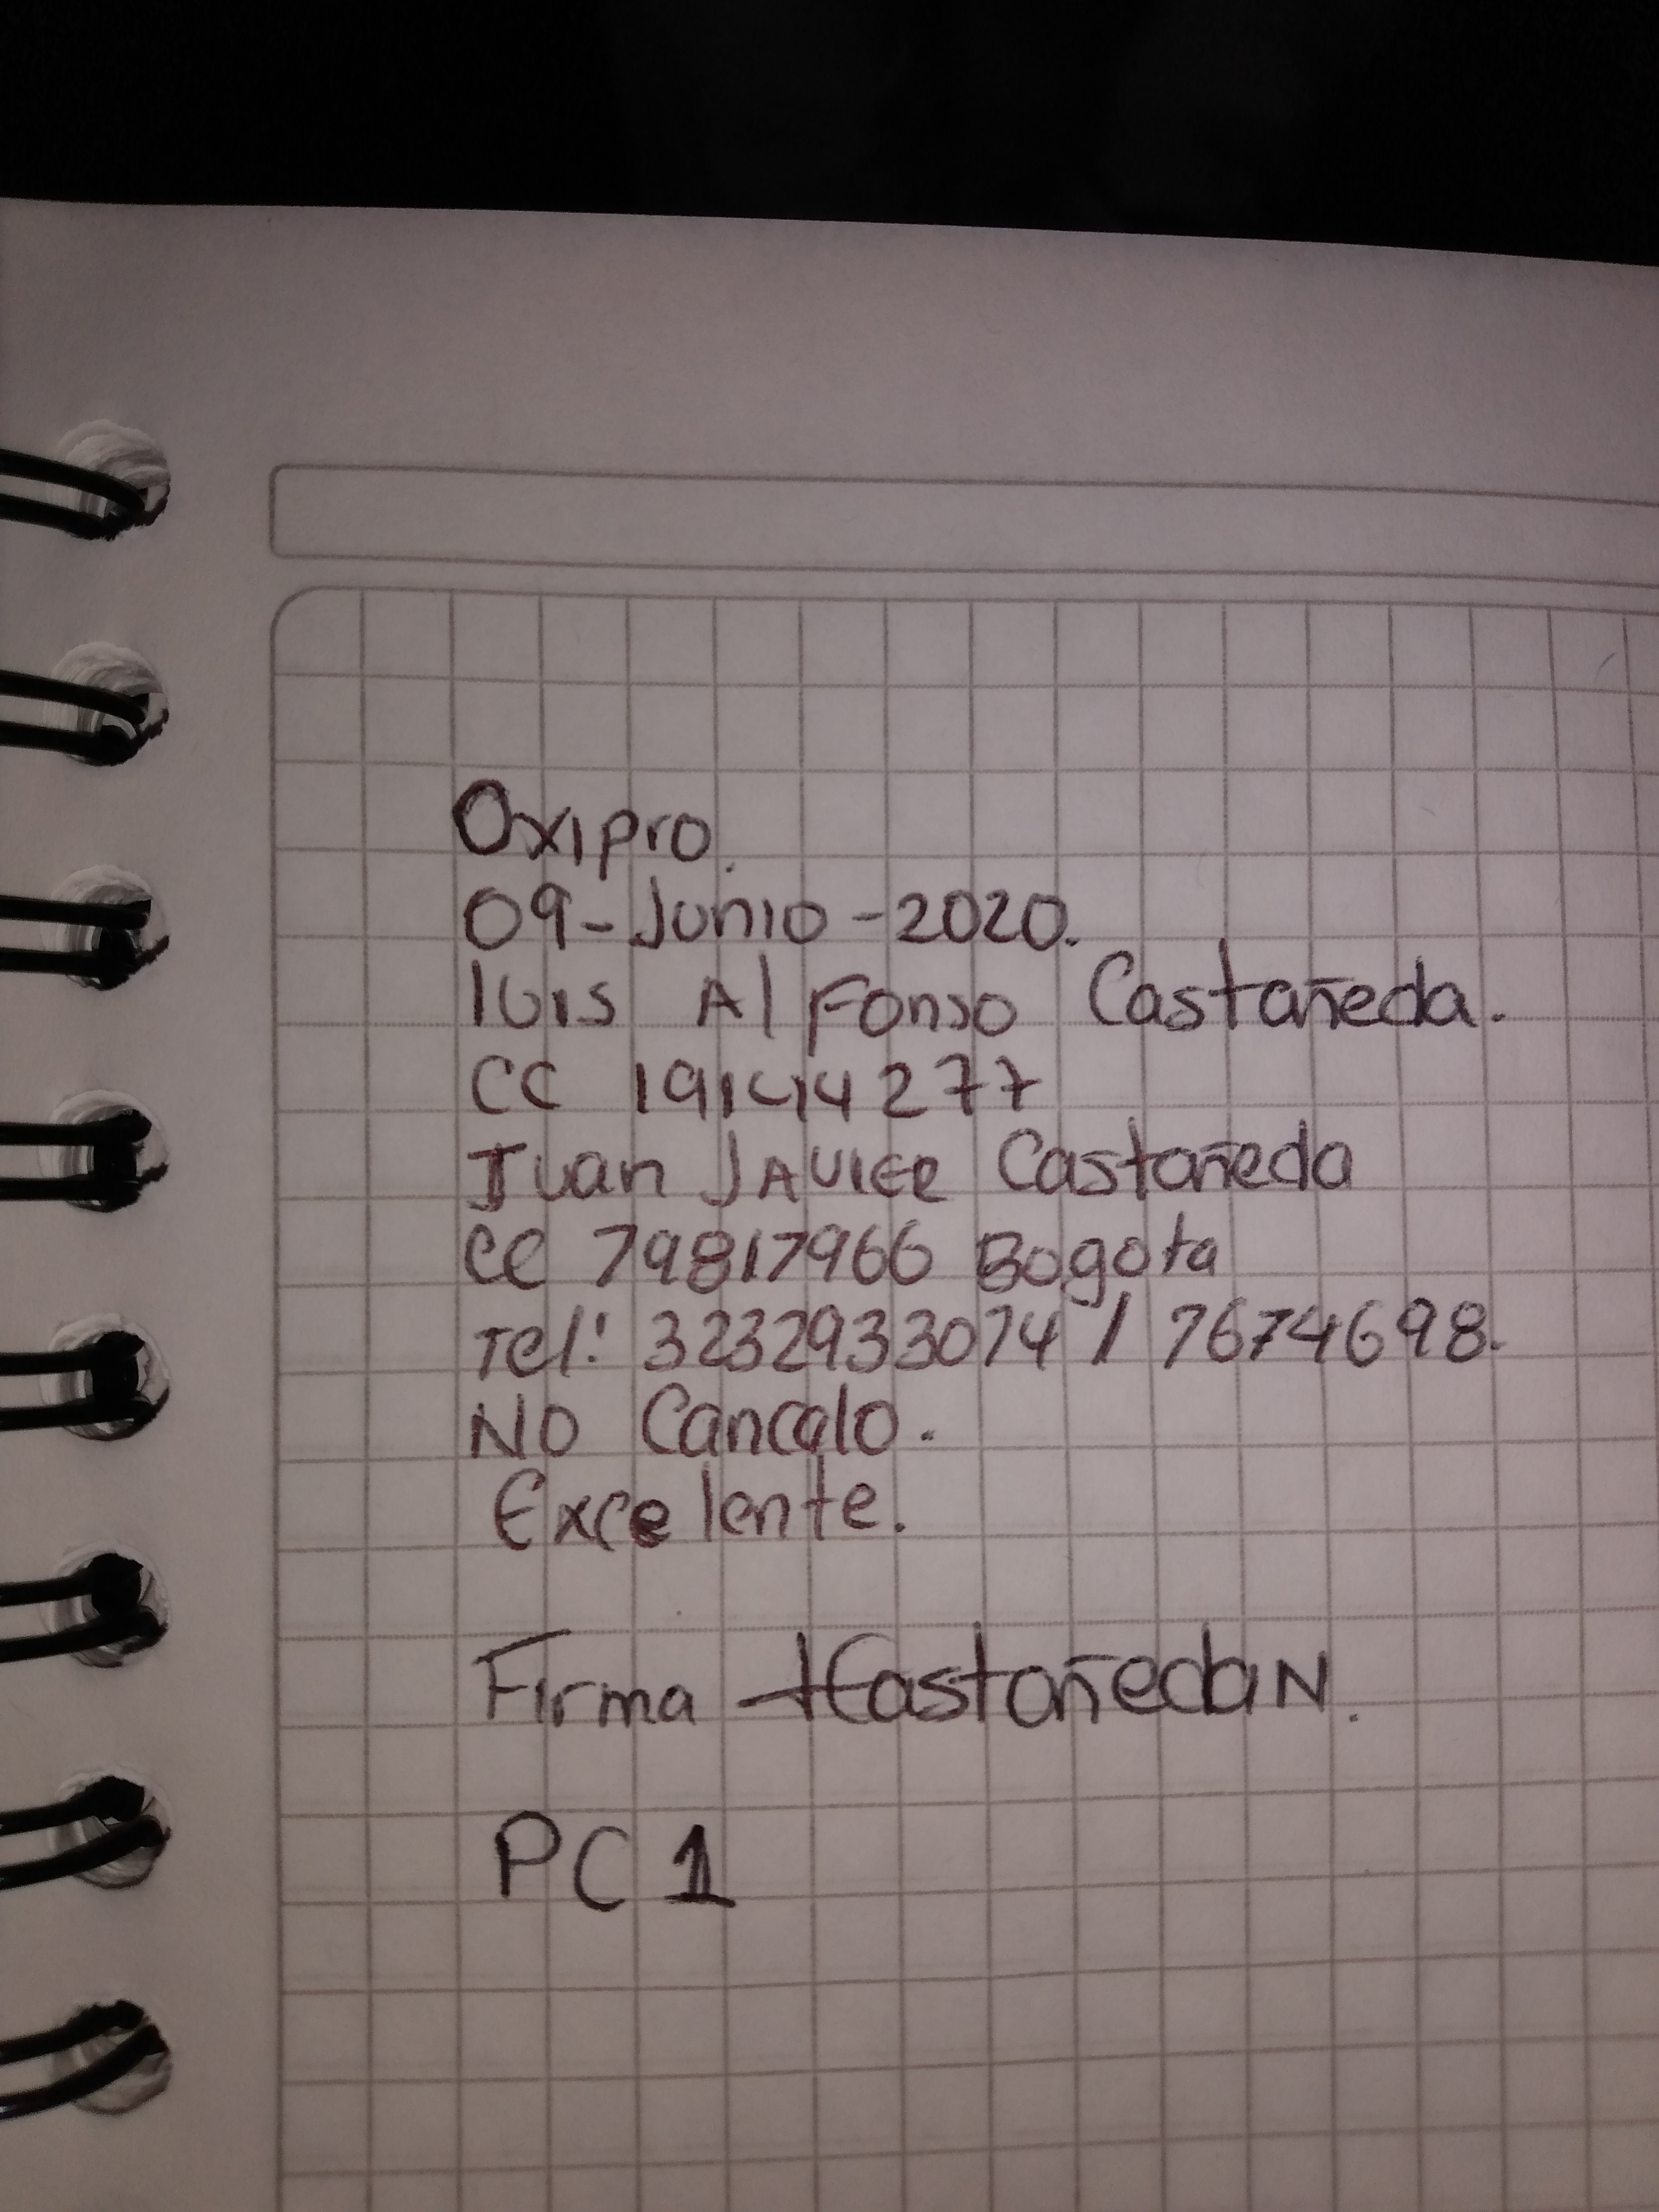 Oxipro.
09-Junio-2020.
luis Alfonso Castañeda.
CC 19144277
Juan JAvier Castañeda
CC 79817966 Bogota
Tel: 3232933074 / 7674698.
No Cancalo.
Excelente.
Firma HCastañedaN.
PC1